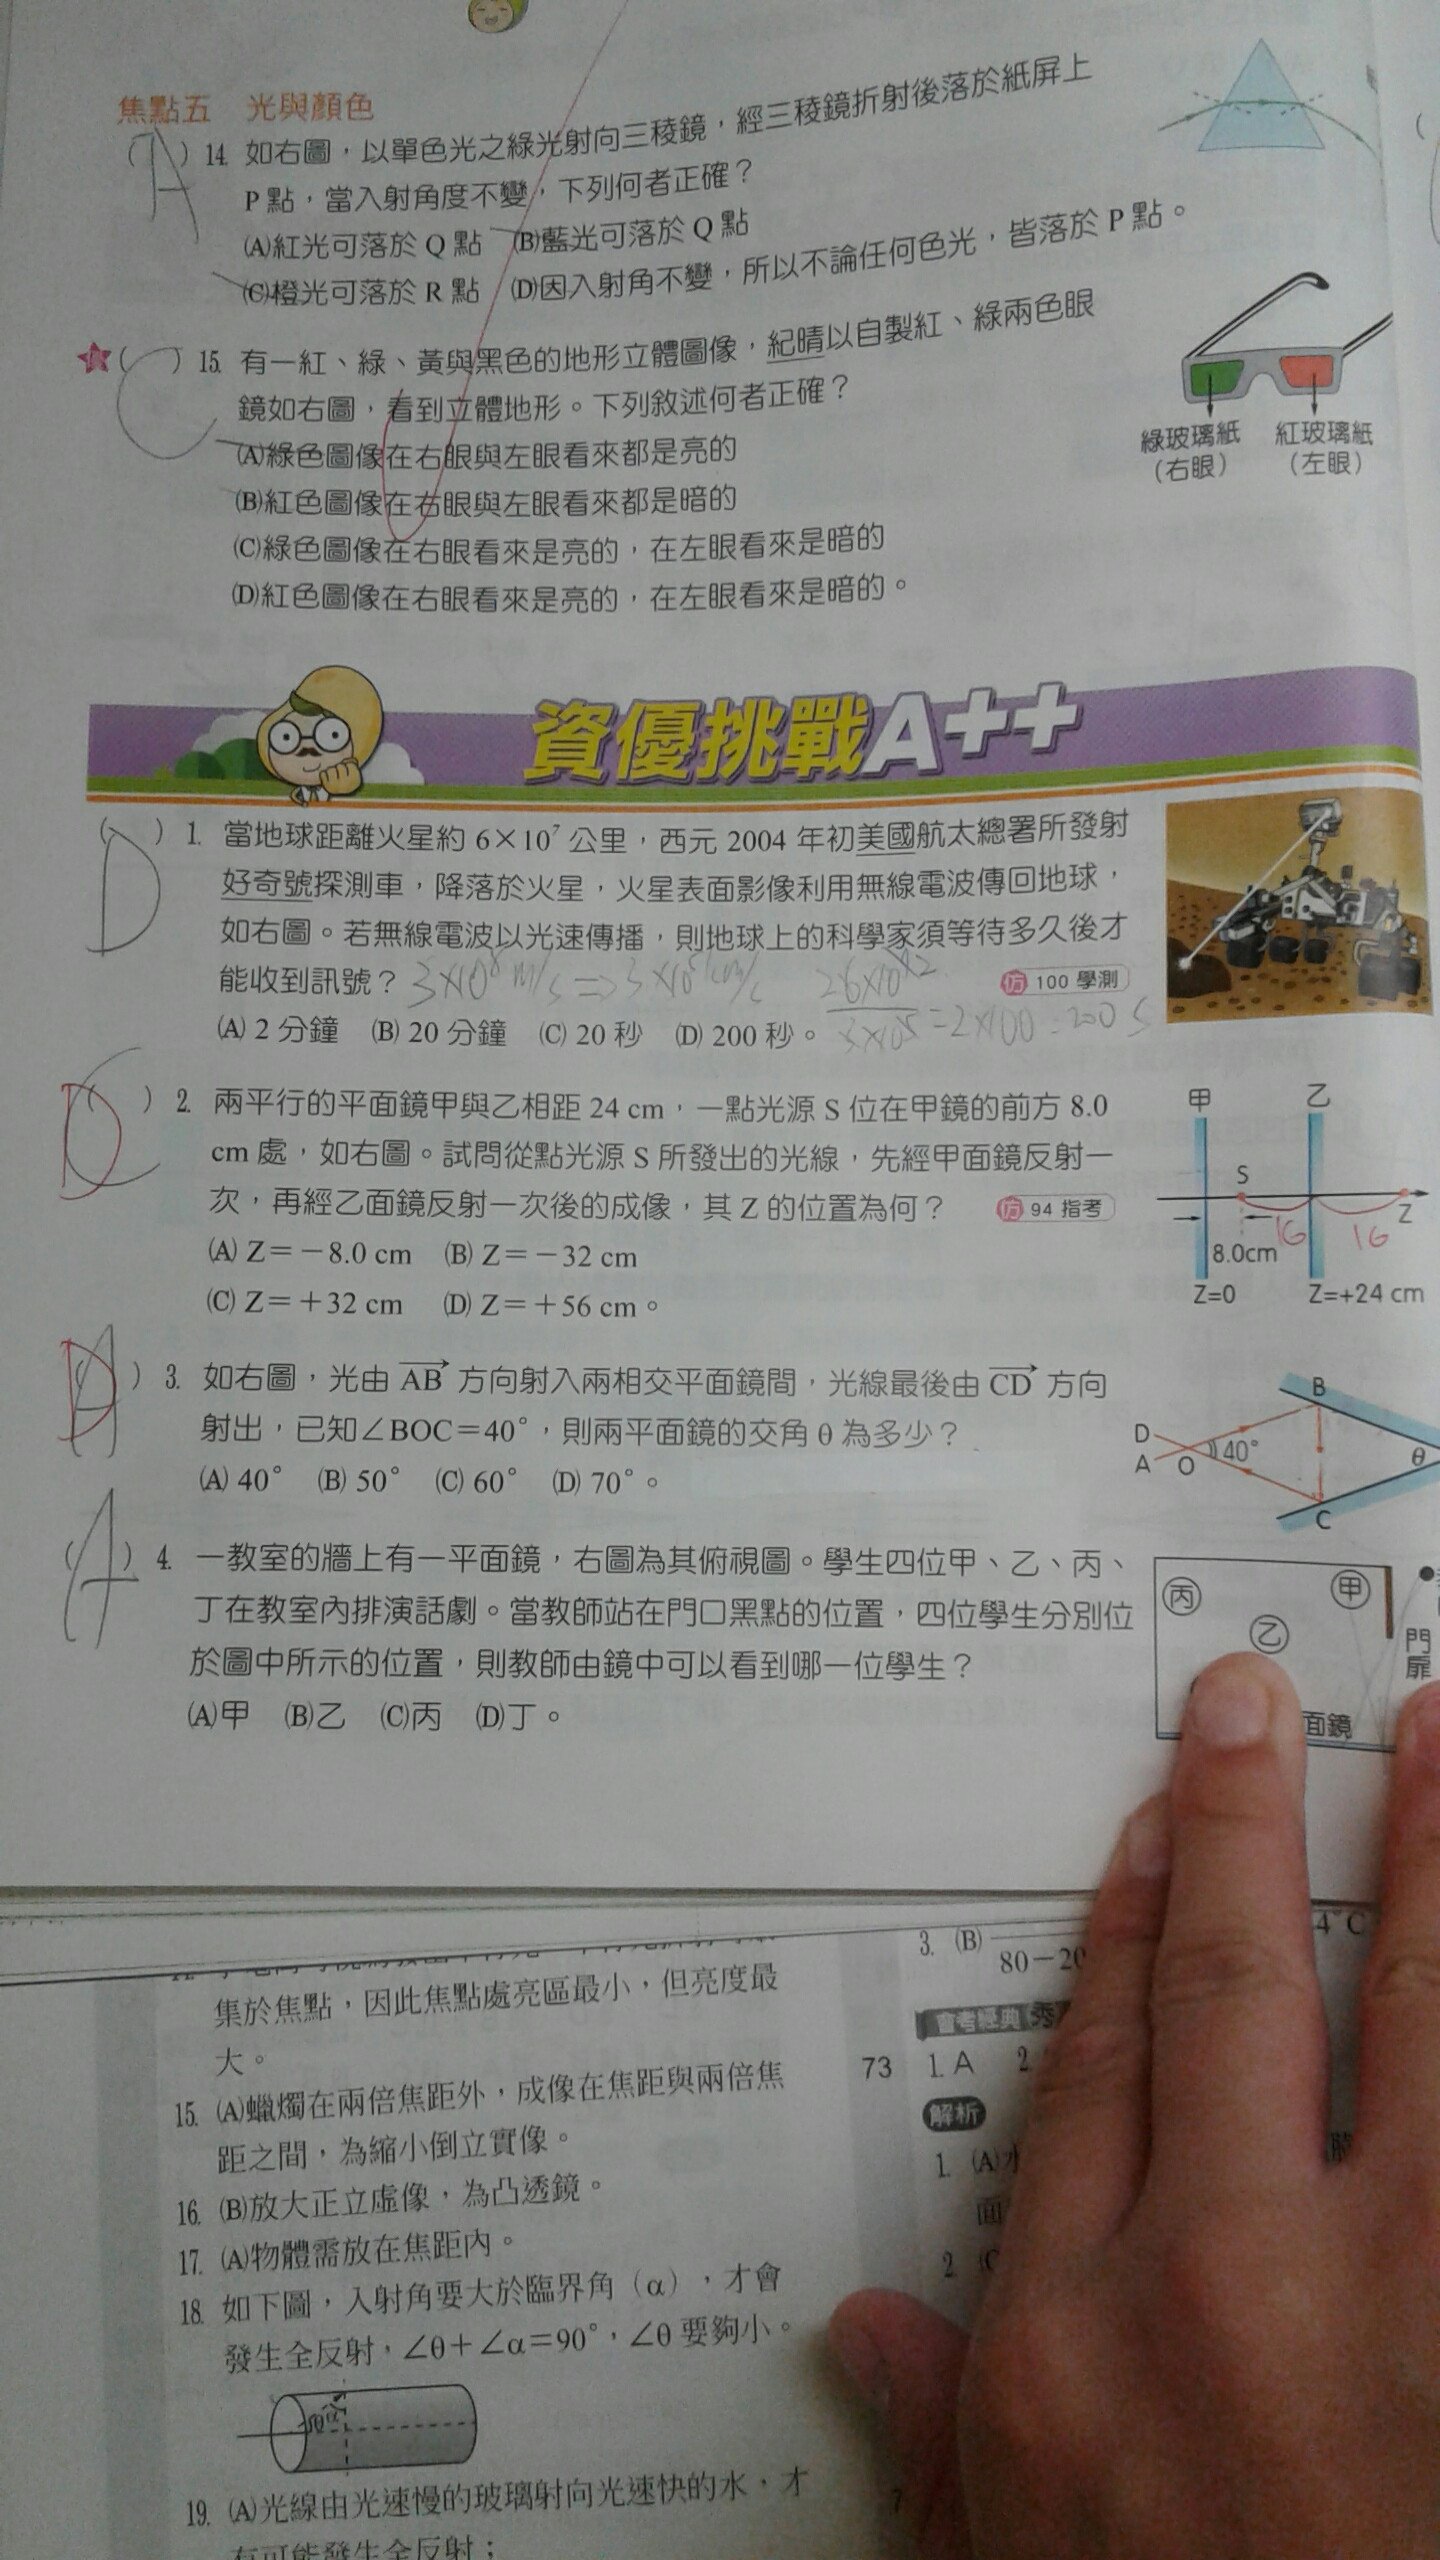 焦點五 光與顏色
(A) 14. 如右圖，以單色光之綠光射向三稜鏡，經三稜鏡折射後落於紙屏上
P點，當入射角度不變，下列何者正確？
(A)紅光可落於Q點 (B)藍光可落於Q點
(C)橙光可落於R點 (D)因入射角不變，所以不論任何色光，皆落於P點。
(C) 15. 有一紅、綠、黃與黑色的地形立體圖像，紀晴以自製紅、綠兩色眼
鏡如右圖，看到立體地形。下列敘述何者正確？
(A)綠色圖像在右眼與左眼看來都是亮的
(B)紅色圖像在右眼與左眼看來都是暗的
(C)綠色圖像在右眼看來是亮的，在左眼看來是暗的
(D)紅色圖像在右眼看來是亮的，在左眼看來是暗的。
綠玻璃紙 紅玻璃紙
（右眼） （左眼）
資優挑戰A++
(D) 1. 當地球距離火星約 6×10⁷ 公里，西元 2004 年初美國航太總署所發射
好奇號探測車，降落於火星，火星表面影像利用無線電波傳回地球，
如右圖。若無線電波以光速傳播，則地球上的科學家須等待多久後才
能收到訊號？ 仿 100 學測
(A) 2 分鐘 (B) 20 分鐘 (C) 20 秒 (D) 200 秒。
=2×100=200 S
D (C) 2. 兩平行的平面鏡甲與乙相距 24 cm，一點光源 S 位在甲鏡的前方 8.0
cm 處，如右圖。試問從點光源 S 所發出的光線，先經甲面鏡反射一
次，再經乙面鏡反射一次後的成像，其 Z 的位置為何？ 仿 94 指考
(A) Z＝－8.0 cm (B) Z＝－32 cm
(C) Z＝＋32 cm (D) Z＝＋56 cm。
甲 乙
S
Z
16 16
8.0cm
Z=0 Z=+24 cm
D (A) 3. 如右圖，光由 AB 方向射入兩相交平面鏡間，光線最後由 CD 方向
射出，已知∠BOC＝40°，則兩平面鏡的交角 θ 為多少？
(A) 40° (B) 50° (C) 60° (D) 70°。
B
D
A O 40° θ
C
(A) 4. 一教室的牆上有一平面鏡，右圖為其俯視圖。學生四位甲、乙、丙、
丁在教室內排演話劇。當教師站在門口黑點的位置，四位學生分別位
於圖中所示的位置，則教師由鏡中可以看到哪一位學生？
(A)甲 (B)乙 (C)丙 (D)丁。
丙 甲
乙
門
扉
面鏡
集於焦點，因此焦點處亮區最小，但亮度最
大。
15. (A)蠟燭在兩倍焦距外，成像在焦距與兩倍焦
距之間，為縮小倒立實像。
16. (B)放大正立虛像，為凸透鏡。
17. (A)物體需放在焦距內。
18. 如下圖，入射角要大於臨界角（α），才會
發生全反射，∠θ＋∠α＝90°，∠θ 要夠小。
θ α
19. (A)光線由光速慢的玻璃射向光速快的水，才
有可能發生全反射；
3. (B)
80－20
4°C
會考經典
73 1. A 2.
解析
1. (A)水
面
2. (C